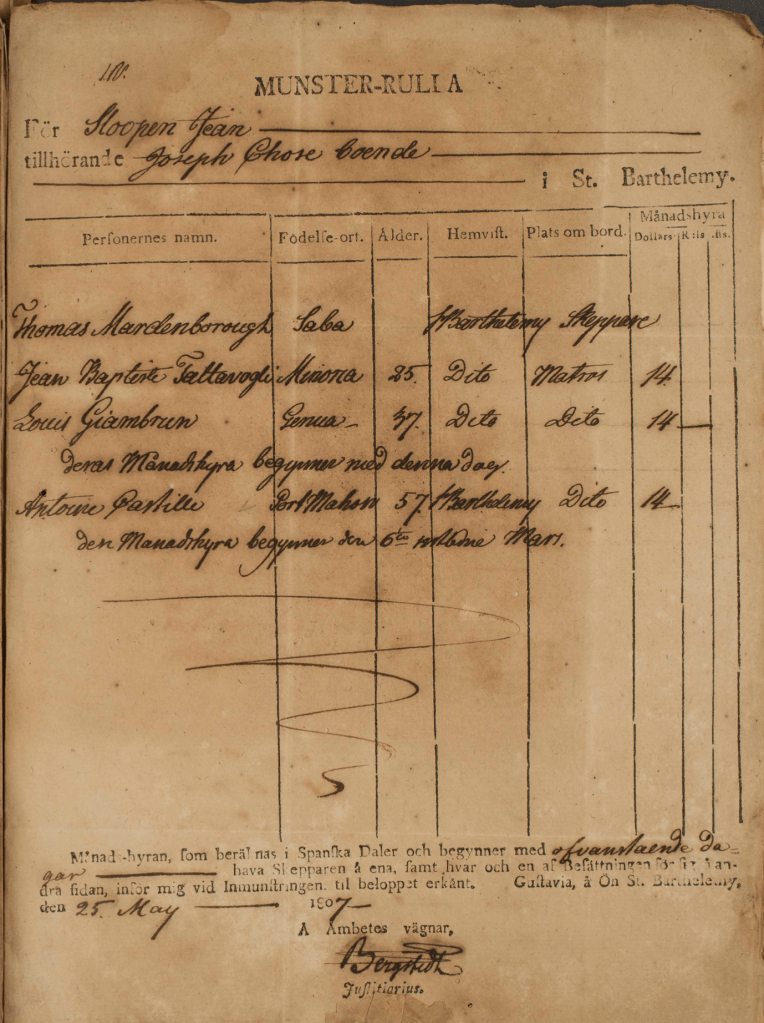 MUNSTER-RULLA
För Sloopen Jean
tillhörande Joseph Chose boende
i St. Barthelemy.
Personernes namn. Födelse-ort. Ålder. Hemvist. Plats om bord. Månadshyra
Dollars Rls Bs.
Thomas Mardenborough Saba St Barthelemy Skeppare
Jean Baptiste Taltavogli Minorca 25. Dito Matros 14
Louis Giambrun Genua 37. Dito Dito 14
deras Månadshyra begynner med denna dag.
Antoine Castille Port Mahon 57 St Barthelemy Dito 14
den Manadshyra begynner den 6te Mars.
Månads-hyran, som beräknas i Spanska Daler och begynner med ofvanstaende da=
gar hava Skepparen å ena, samt hvar och en af Besättningen för sig å an-
dra sidan, inför mig vid Inmunstringen, til beloppet erkänt. Gustavia, å Ön St. Barthelemy,
den 25. May 1807
Å Ämbetes vägnar,
Bergstedt
Justitiarius.